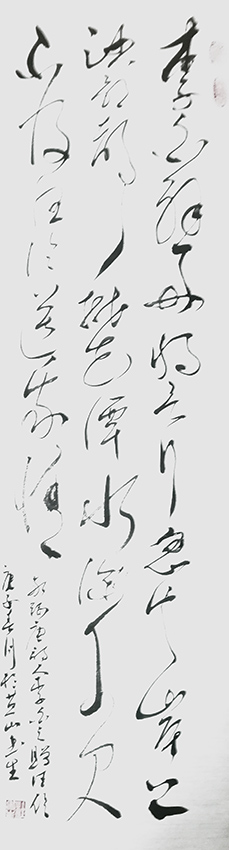 李白乘舟将欲行忽闻岸上
踏歌声桃花潭水深千尺
不及汪伦送我情
唐诗人李白之赠汪伦
庚子春月於山书